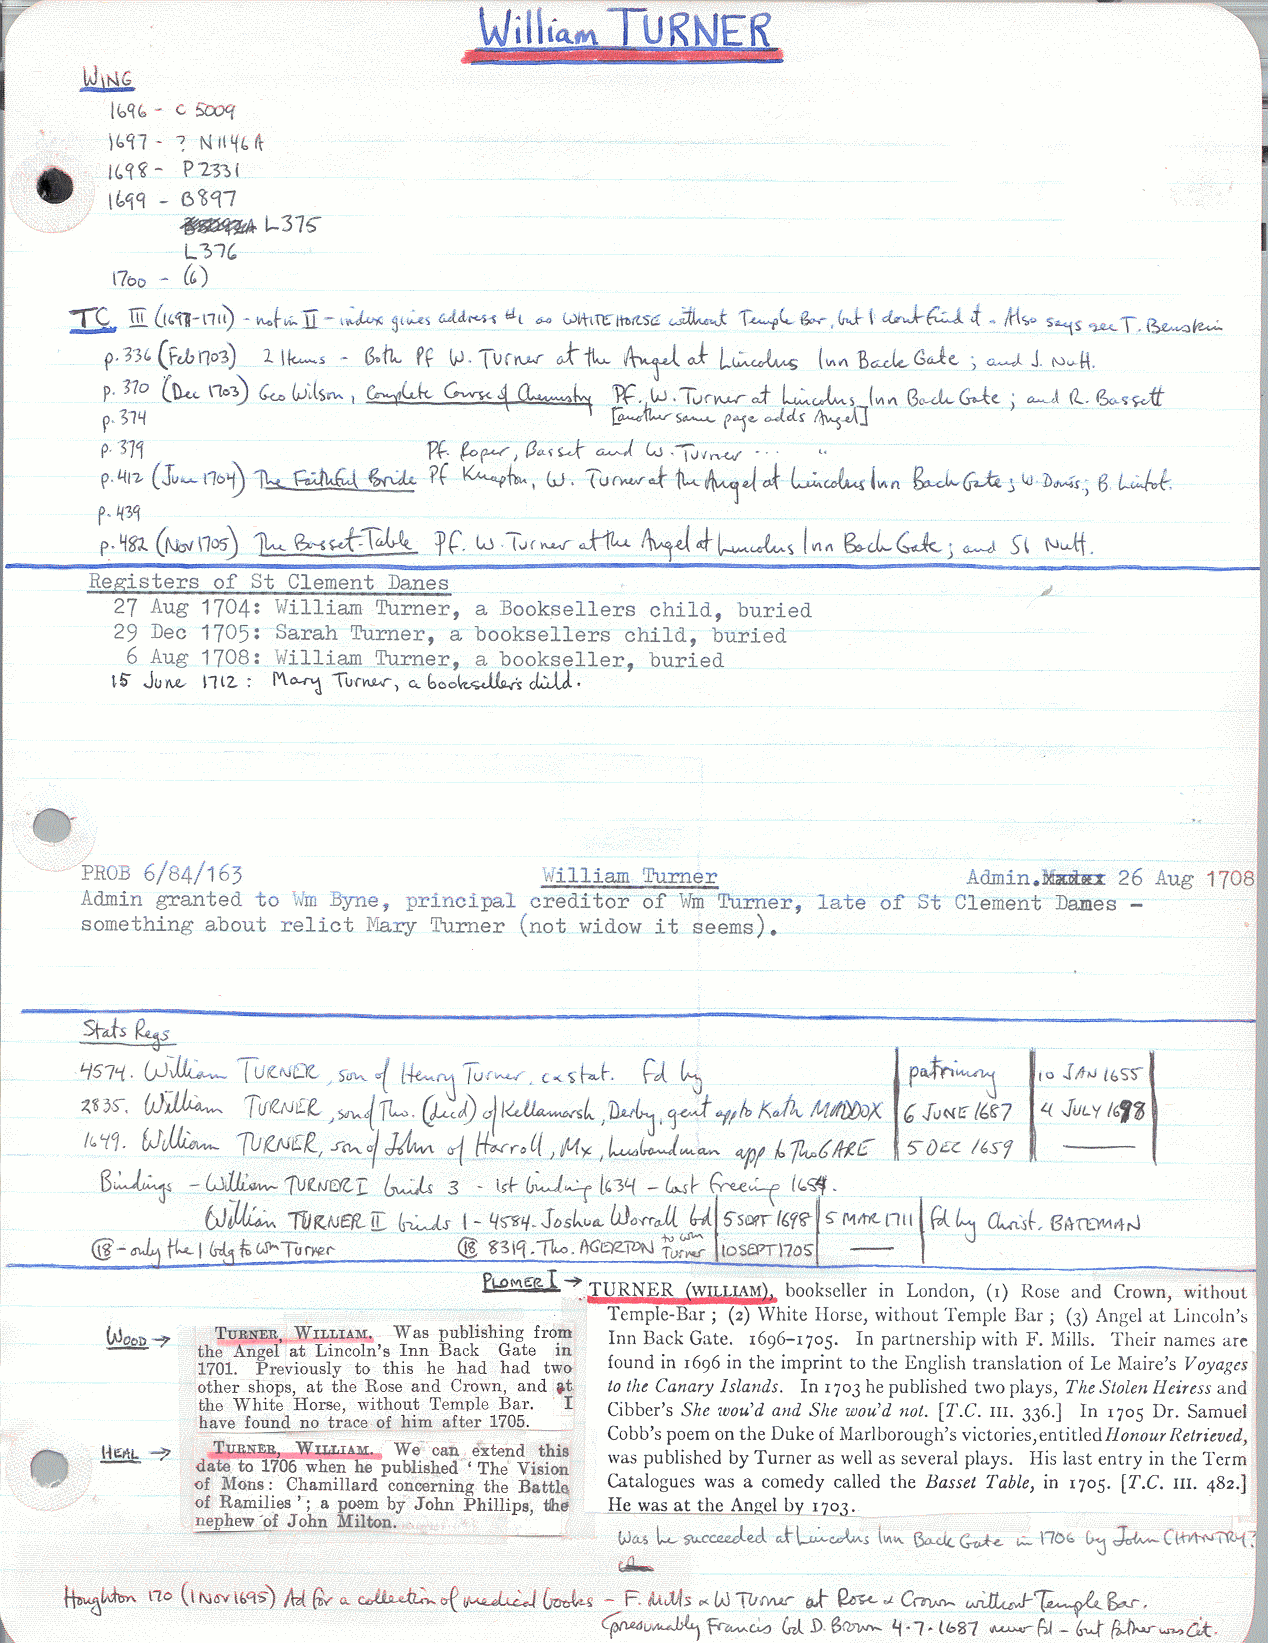 William TURNER
WING
1696 - C 5009
1697 - ? N1146A
1698 - P2331
1699 - B897
L375
L376
1700 - (6)
TC III (1697-1711) - not in II - index gives address #1 as WHITE HORSE without Temple Bar, but I dont find it - Also says see T. Benskin
p.336 (Feb 1703) 2 Items - Both Pf W. Turner at the Angel at Lincolns Inn Back Gate; and J. Nutt.
p.370 (Dec 1703) Geo Wilson, Complete Course of Chemistry Pf. W. Turner at Lincolns Inn Back Gate; and R. Bassett
p.374 [another same page adds Angel]
p.379 Pf. Roper, Basset and W. Turner ... "
p.412 (June 1704) The Faithful Bride Pf Knapton, W. Turner at the Angel at Lincolns Inn Back Gate; W. Davis; B. Lintot.
p.439
p.482 (Nov 1705) The Basset-Table Pf. W. Turner at the Angel at Lincolns Inn Back Gate; and J. Nutt.
Registers of St Clement Danes
27 Aug 1704: William Turner, a Booksellers child, buried
29 Dec 1705: Sarah Turner, a booksellers child, buried
6 Aug 1708: William Turner, a bookseller, buried
15 June 1712: Mary Turner, a bookseller's child.
PROB 6/84/163 William Turner Admin. 26 Aug 1708
Admin granted to Wm Byne, principal creditor of Wm Turner, late of St Clement Danes -
something about relict Mary Turner (not widow it seems).
Stats Regs
4574. William TURNER, son of Henry Turner, c&stat. Fd by patrimony 10 JAN 1655
2835. William TURNER, son of Tho. (decd) of Kellamarsh, Derby, gent app to Kath MADDOX 6 JUNE 1687 4 JULY 1698
1649. William TURNER, son of John of Harroll, Mx, husbandman app to Tho GARE 5 DEC 1659 ——
Bindings - William TURNER I binds 3 - 1st binding 1634 - last freeing 1654.
William TURNER II binds 1 - 4584. Joshua Worrall bd 5 SEPT 1698 5 MAR 1711 fd by Christ. BATEMAN
@18 - only the 1 bdg to Wm Turner @18 8319. Tho. AGERTON to Wm Turner 10 SEPT 1705 ——
PLOMER I → TURNER (WILLIAM), bookseller in London, (1) Rose and Crown, without
Temple-Bar; (2) White Horse, without Temple Bar; (3) Angel at Lincoln's
Inn Back Gate. 1696–1705. In partnership with F. Mills. Their names are
found in 1696 in the imprint to the English translation of Le Maire's Voyages
to the Canary Islands. In 1703 he published two plays, The Stolen Heiress and
Cibber's She wou'd and She wou'd not. [T.C. III. 336.] In 1705 Dr. Samuel
Cobb's poem on the Duke of Marlborough's victories, entitled Honour Retrieved,
was published by Turner as well as several plays. His last entry in the Term
Catalogues was a comedy called the Basset Table, in 1705. [T.C. III. 482.]
He was at the Angel by 1703.
WOOD → TURNER, WILLIAM. Was publishing from
the Angel at Lincoln's Inn Back Gate in
1701. Previously to this he had had two
other shops, at the Rose and Crown, and at
the White Horse, without Temple Bar. I
have found no trace of him after 1705.
HEAL → TURNER, WILLIAM. We can extend this
date to 1706 when he published 'The Vision
of Mons: Chamillard concerning the Battle
of Ramilies'; a poem by John Phillips, the
nephew of John Milton.
Was he succeeded at Lincolns Inn Back Gate in 1706 by John CHANTRY?
Houghton 170 (1 Nov 1695) Ad for a collection of medical books - F. Mills & W Turner at Rose & Crown without Temple Bar.
(presumably Francis bd D. Brown 4-7-1687 never fd - but father was Cit.